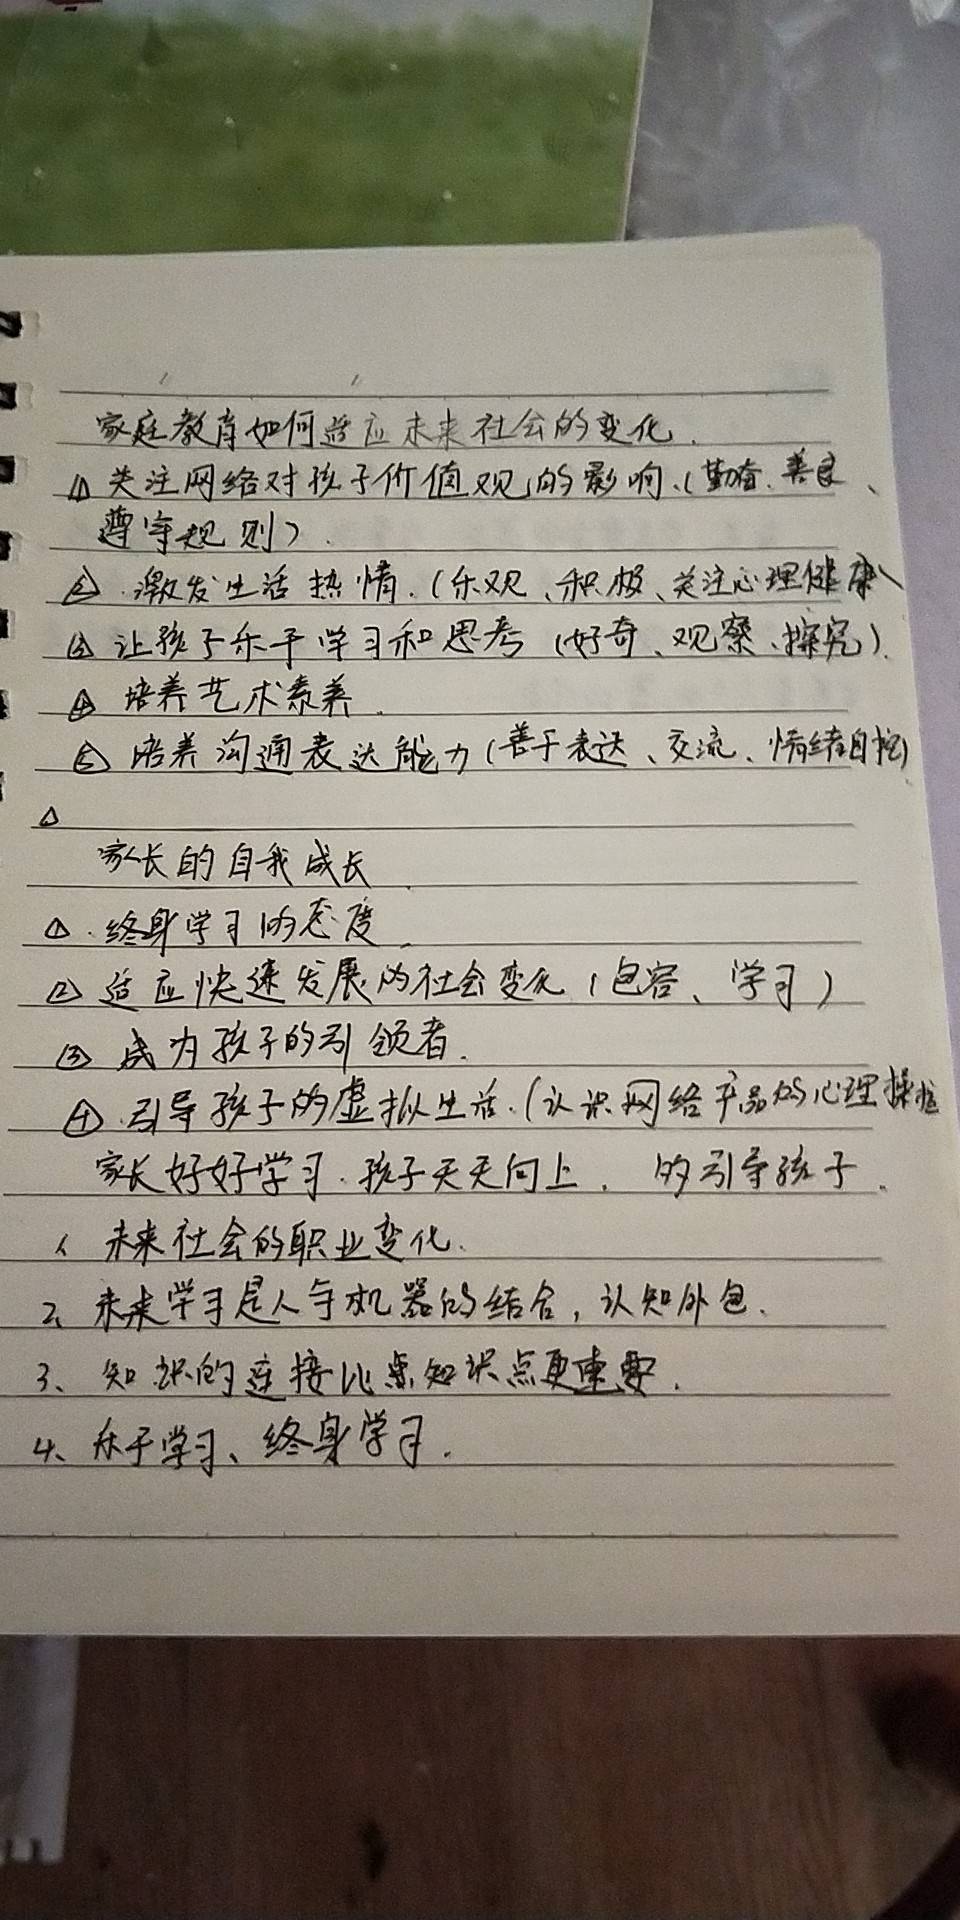 家庭教育如何适应未来社会的变化.
① 关注网络对孩子价值观的影响.(勤奋、善良、
遵守规则).
② .激发生活热情.(乐观、积极、关注心理健康)
③ 让孩子乐于学习和思考 (好奇、观察、探究).
④ 培养艺术素养.
⑤ 培养沟通表达能力(善于表达、交流、情绪自控)
家长的自我成长.
①.终身学习的态度.
② 适应快速发展的社会变化(包容、学习)
③ 成为孩子的引领者.
④.引导孩子的虚拟生活.(认识网络产品的心理操控
家长好好学习.孩子天天向上. 的引导孩子.
1、未来社会的职业变化.
2、未来学习是人与机器的结合,认知外包.
3、知识的连接比知识点更重要.
4、乐于学习、终身学习.